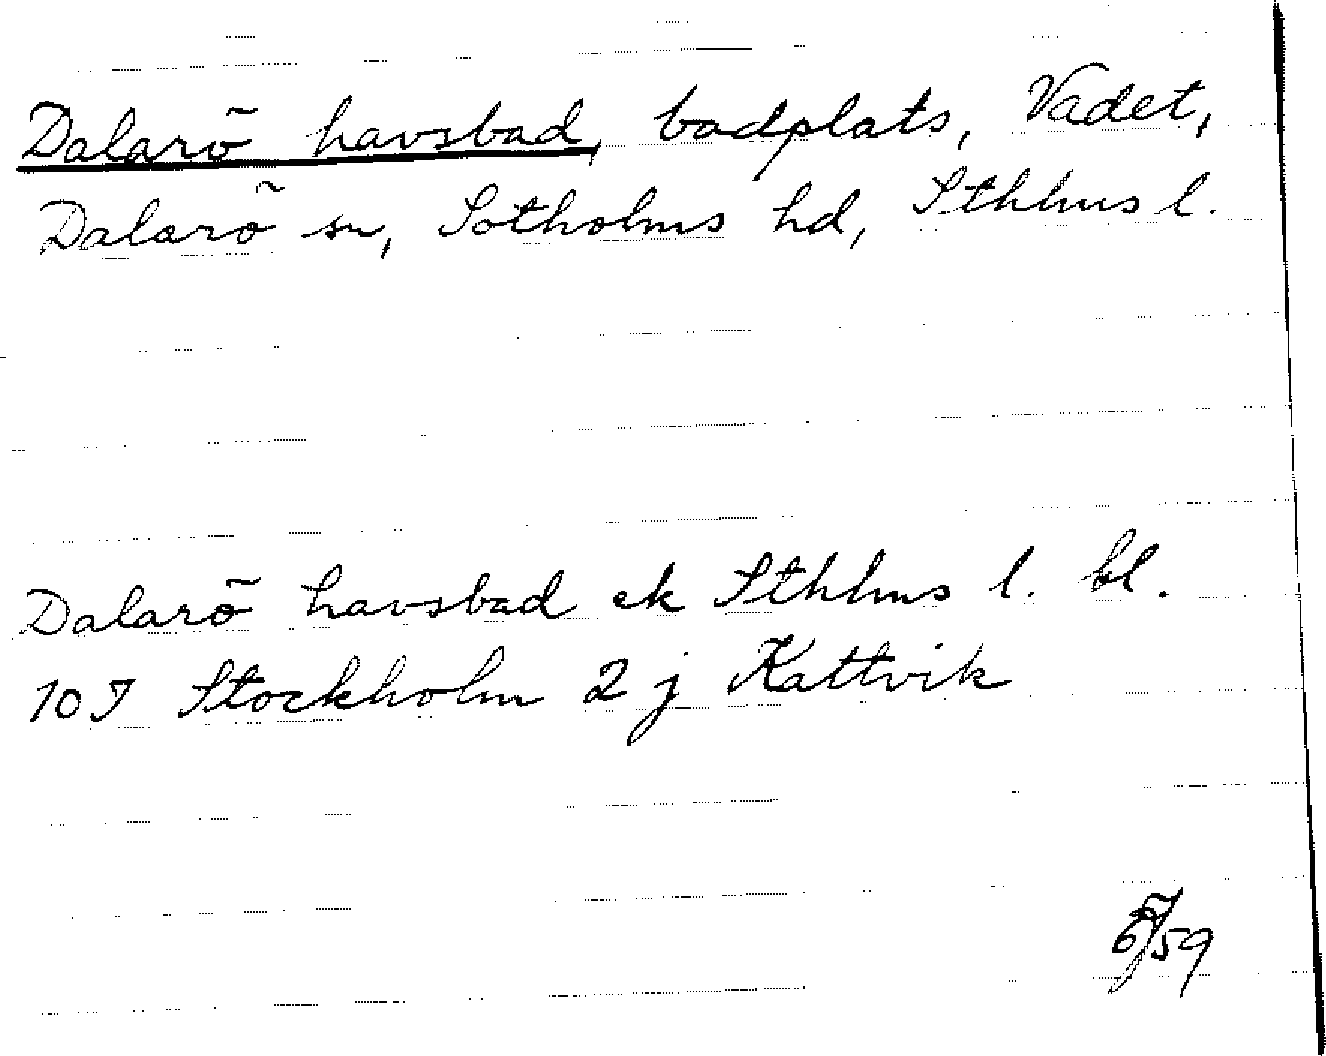 Dalarö havsbad, badplats, Vadet,
Dalarö sn, Sotholms hd, Sthlms l.
Dalarö havsbad ek Sthlms l. bl.
10 I Stockholm 2 j Kattvik